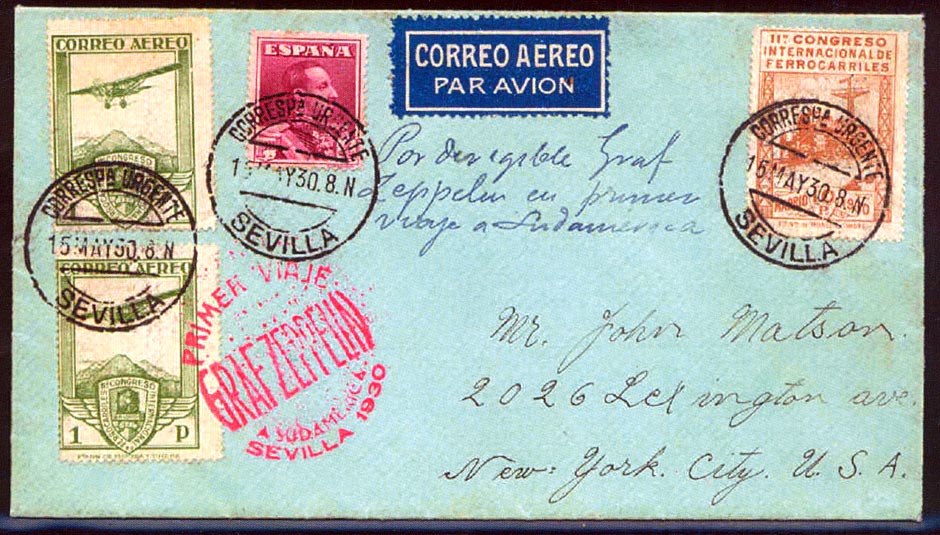 CORREO AEREO
ESPAÑA
CORREO AÉREO
PAR AVION
11º CONGRESO
INTERNACIONAL DE
FERROCARRILES
CORRESPA URGENTE
15 MAY 30. 8. N
SEVILLA
CORRESPA URGENTE
15 MAY 30. 8. N
SEVILLA
CORRESPA URGENTE
15 MAY 30. 8. N
SEVILLA
Por dirigible Graf
Zeppelin en primer
viaje a Sudamerica
CONGRESO
CORREO AEREO
PRIMER VIAJE
GRAF ZEPPELIN
A SUDAMERICA
SEVILLA 1930
CONGRESO
INTERNACIONAL
FERROCARRILES
1 P
Mr. John Matson
2026 Lexington ave.
New York. City. U. S. A.